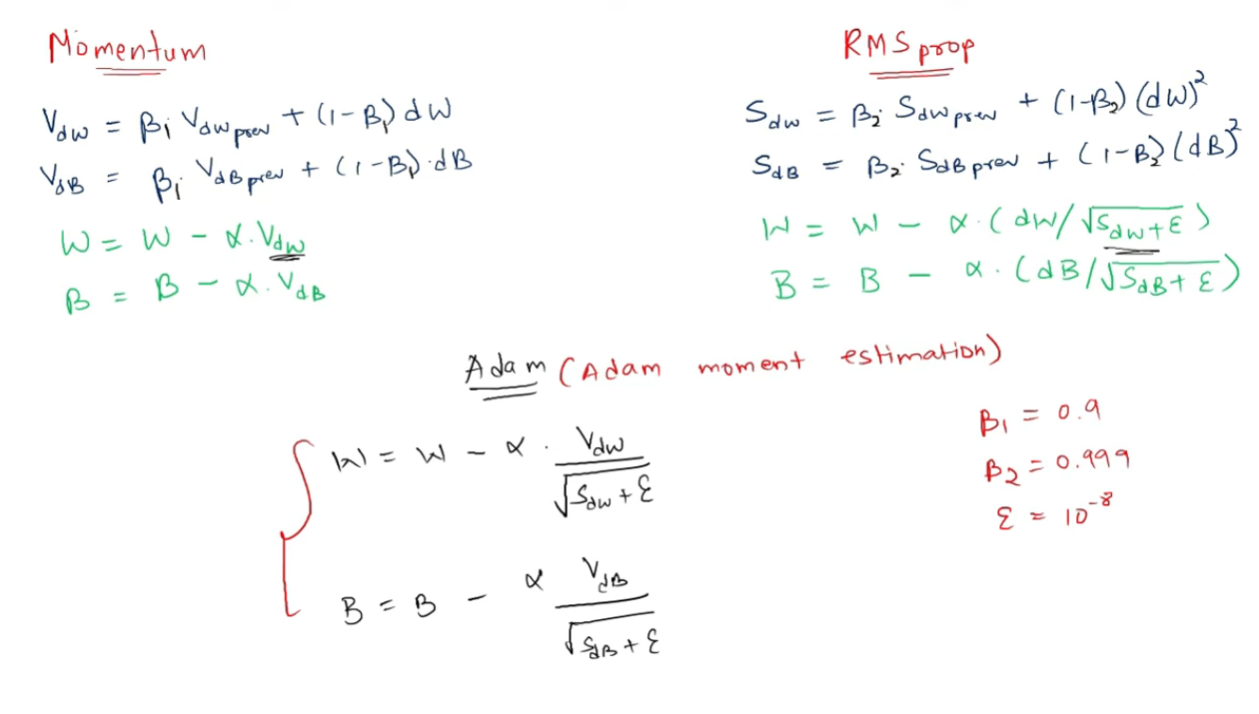 Momentum
V_dw = β₁ V_dw prev + (1 - β₁) dW
V_dB = β₁ V_dB prev + (1 - β₁) · dB
W = W - α · V_dw
B = B - α · V_dB
RMS prop
S_dw = β₂ · S_dw prev + (1-β₂) (dW)²
S_dB = β₂ · S_dB prev + (1-β₂) (dB)²
W = W - α · (dW/√(S_dw + ε))
B = B - α · (dB/√(S_dB + ε))
Adam (Adam moment estimation)
W = W - α · V_dw / √(S_dw + ε)
B = B - α V_dB / √(S_dB + ε)
β₁ = 0.9
β₂ = 0.999
ε = 10⁻⁸